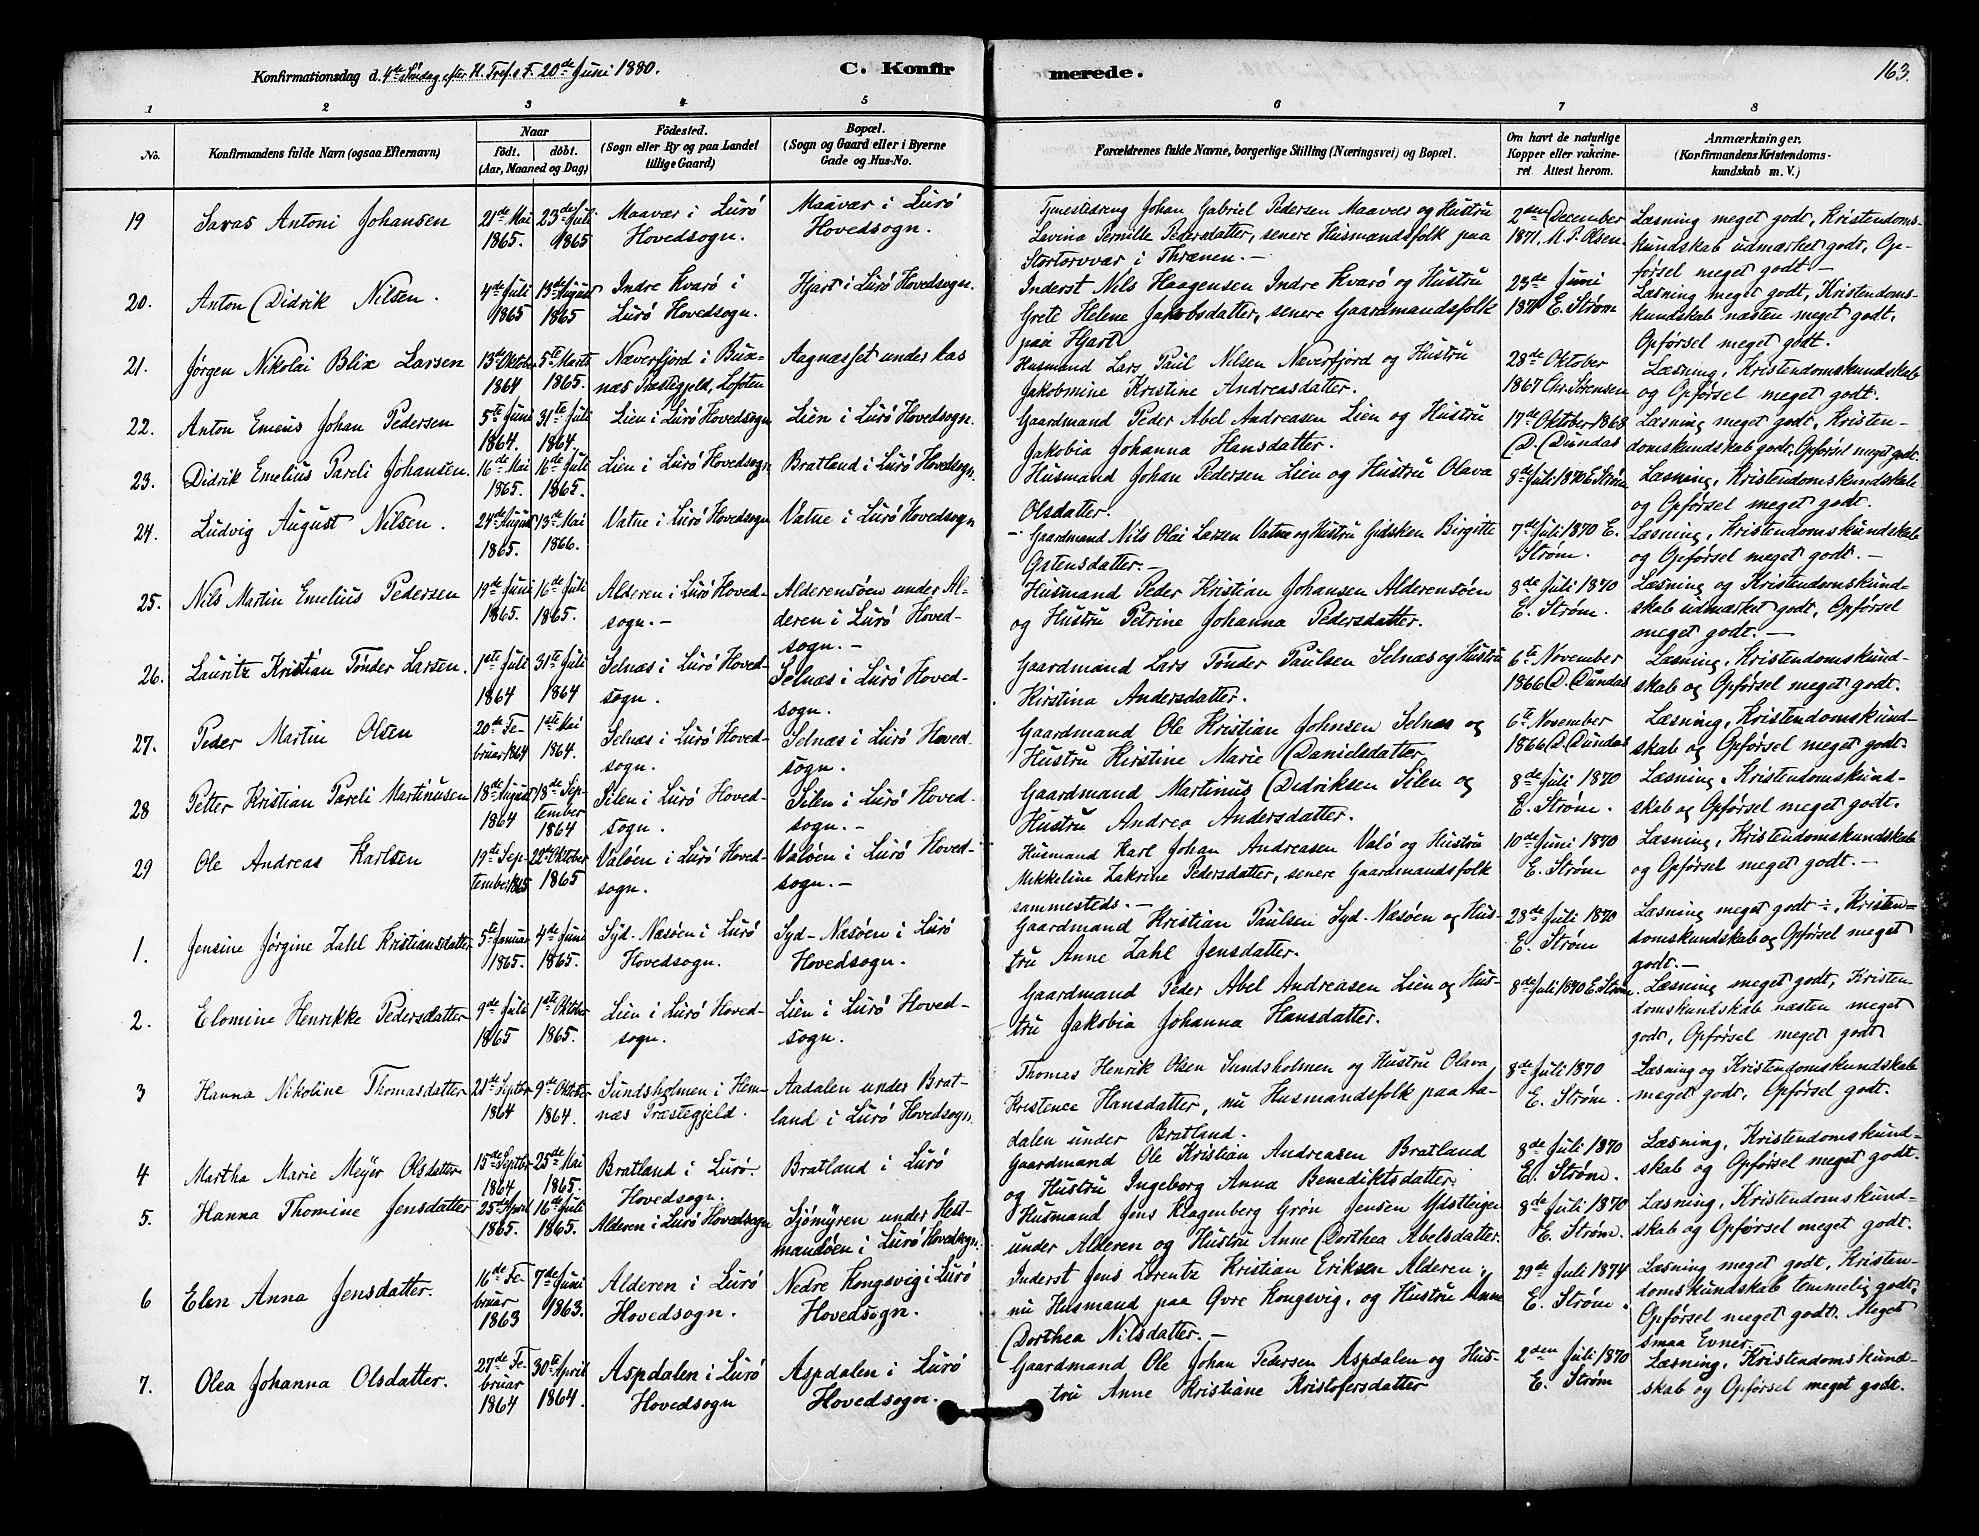 Konfirmationsdag d. 4de Söndag efter H. Tref. F. 20de Juni 1880.
C. Konfir merede.
163.
1 2 3 4 5 6 7 8
No.
Konfirmandens fulde Navn (ogsaa Efternavn)
Naar
födt. döbt.
(Aar, Maaned og Dag)
Födested.
(Sogn eller By og paa Landet
tillige Gaard)
Bopæl.
(Sogn og Gaard eller i Byerne
Gade og Hus-No.
Forældrenes fulde Navne, borgerlige Stilling (Næringsvei) og Bopæl.
Om havt de naturlige
Kopper eller vakcine-
ret. Attest herom.
Anmærkninger.
(Konfirmandens Kristendoms-
kundskab m. V.)
19 Savas Antoni Johansen
21de Mai
1865.
23de Juli
1865
Maavær i Lurö
Hovedsogn.
Maavær i Lurö
Hovedsogn.
Tjenestedreng Johan Gabriel Pedersen Maavær og Hustru
Lavina Pernille Pedersdatter, senere Husmandsfolk paa
Stortorvvær i Thrænen. —
2den December
1871. M. P. Olsen.
Læsning meget godt, Kristendoms-
kundskab udmærket godt, Op-
førsel meget godt —
20. Anton Didrik Nilsen.
4de Juli
1865
13de August
1865
Indre Kvarö i
Lurö Hovedsogn.
Hjart i Lurö Hovedsogn.
Inderst Nils Haagensen Indre Kvarö og Hustru
Grete Helene Jakobsdatter, senere Gaardmandsfolk
paa Hjart
23de Juni
1871 E. Strøm
Læsning meget godt, Kristendoms-
kundskab næsten meget godt,
Opførsel meget godt.
21. Jørgen Nikolai Blix Larsen
13de Oktober
1864
5te Marts
1865.
Næverfjord i Bux-
næs Præstegjeld, Lofoten
Aagnæsset under Aas
Husmand Lars Paul Nilsen Næverfjord og Hustru
Jakobmine Kristine Andreasdatter.
28de Oktober
1867 Chr. Sörensen
Læsning, Kristendomskundskab
og Opførsel meget godt.
22. Anton Emeus Johan Pedersen
5te Juni
1864.
31te Juli
1864.
Lien i Lurö Hovedsogn
Lien i Lurö Hovedsogn.
Gaardmand Peder Abel Andreasen Lien og Hustru
Jakobia Johanna Hansdatter.
17de Oktober 1868
D. Dundas
Læsning meget godt, Kristen-
domskundskab godt, Opførsel meget godt.
23. Didrik Emelius Pareli Johansen.
16de Mai
1865.
16de Juli
1865.
Lien i Lurö Hovedsogn
Bratland i Lurö Hovedsogn.
Husmand Johan Pedersen Lien og Hustru Olava
Olsdatter.
8de Juli 1870 E. Strøm
Læsning, Kristendomskundskab
og Opførsel meget godt.
24. Ludvig August Nilsen.
24de August
1865.
13de Mai
1866.
Vatne i Lurö Hovedsogn
Vatne i Lurö Hovedsogn
Gaardmand Nils Olai Larsen Vatne og Hustru Gidsken Birgitte
Ostensdatter. —
7de Juli 1870 E.
Strøm.
Læsning, Kristendomskundskab
og Opførsel meget godt. —
25. Nils Martin Emelius Pedersen
19de Juni
1865.
16de Juli
1865.
Alderen i Lurö Hoved-
sogn. —
Alderensöen under Al-
deren i Lurö Hoved-
sogn. —
Husmand Peder Kristian Johansen Alderensöen
og Hustru Petrine Johanna Pedersdatter.
8de Juli 1870
E. Strøm.
Læsning og Kristendomskund-
skab udmærket godt, Opførsel
meget godt. —
26. Lauritz Kristian Tönder Larsen.
1ste Juli
1864
31te Juli
1864
Selnæs i Lurö Hoved-
sogn.
Selnæs i Lurö Hoved-
sogn.
Gaardmand Lars Tönder Paulsen Selnæs og Hustru
Kirstina Andersdatter.
6te November
1866 D. Dundas
Læsning, Kristendomskund-
skab og Opførsel meget godt.
27. Peder Martin Olsen
20de Fe-
bruar 1864
1ste Mai
1864.
Selnæs i Lurö Hoved-
sogn.
Selnæs i Lurö Hoved-
sogn.
Gaardmand Ole Kristian Johnsen Selnæs og
Hustru Kirstine Marie Danielsdatter
6te November
1866 D. Dundas
Læsning, Kristendomskund-
skab og Opførsel meget godt.
28 Petter Kristian Pareli Martinusen
18de August
1864
18de Sep-
tember
1864
Silen i Lurö Hoved-
sogn.
Silen i Lurö Hoved-
sogn. —
Gaardmand Martinus Didriksen Silen og
Hustru Andrea Andersdatter.
8de Juli 1870
E. Strøm.
Læsning, Kristendomskund-
skab og Opførsel meget godt.
29 Ole Andreas Karlsen
19de Sep-
tember 1865
22de Oktober
1865
Valöen i Lurö Hoved-
sogn.
Valöen i Lurö Hoved-
sogn. —
Husmand Karl Johan Andreasen Valö og Hustru
Mikkeline Zakrine Pedersdatter, senere Gaardmandsfolk
sammesteds. —
10de Juni 1870
E. Strøm
Læsning, Kristendomskundskab
og Opførsel meget godt. —
1. Jensine Jørgine Zahl Kristiansdatter
5te Januar
1865.
4de Juni
1865.
Syd-Næsöen i Lurö
Hovedsogn.
Syd-Næsöen i Lurö
Hovedsogn.
Gaardmand Kristian Paulsen Syd-Næsöen og Hus-
tru Anne Zahl Jensdatter.
28de Juli 1870
E. Strøm
Læsning meget godt ÷, Kristen-
domskundskab og Opførsel meget
godt. —
2. Elomine Henrikke Pedersdatter
9de Juli
1865
1ste Oktober
1865.
Lien i Lurö Hoved-
sogn.
Lien i Lurö Hoved-
sogn.
Gaardmand Peder Abel Andreasen Lien og Hus-
tru Jakobia Johanna Hansdatter.
8de Juli 1870 E. Strøm
Læsning meget godt, Kristen-
domskundskab næsten meget
godt, Opførsel meget godt
3 Hanna Nikoline Thomasdatter
21de Septbr
1864
9de Oktober
1864.
Sundsholmen i Hem-
næs Præstegjeld.
Aadalen under Brat-
land i Lurö Hovedsogn.
Thomas Henrik Olsen Sundsholmen og Hustru Olava
Kristence Hansdatter, nu Husmandsfolk paa Aa-
dalen under Bratland.
8de Juli 1870
E. Strøm.
Læsning og Kristendomskundskab
meget godt, Opførsel godt.
4 Martha Marie Meyer Olsdatter
15de Septbr
1864
25de Mai
1865.
Bratland i Lurö.
Hovedsogn.
Bratland i Lurö
Gaardmand Ole Kristian Andreasen Bratland
og Hustru Ingeborg Anna Benediktsdatter
8de Juli 1870
E. Strøm.
Læsning, Kristendomskund-
skab og Opførsel meget godt.
5. Hanna Thomine Jensdatter
25de April
1865.
16de Juli
1865.
Alderen i Lurö Hovedsogn
Sjömyren under Hest-
mandöen i Lurö Hovedsogn.
Husmand Jens Klagenberg Grön Jensen Ydstteigen
under Alderen og Hustru Anne Dorthea Abelsdatter.
8de Juli 1870
E. Strøm.
Læsning, Kristendomskund-
skab og Opførsel meget godt.
6 Elen Anna Jensdatter.
16de Fe-
bruar
1863
7de Juni
1863.
Alderen i Lurö
Hovedsogn.
Nedre Kongsvig i Lurö
Hovedsogn.
Inderst Jens Lorentz Kristian Eriksen Alderen,
nu Husmand paa Øvre Kongsvig, og Hustru Anne
Dorthea Nilsdatter. —
29de Juli 1874
E. Strøm.
Læsning meget godt, Kristen-
domskundskab temmelig godt,
Opførsel meget godt. Meget
smaa Evner.
7. Olea Johanna Olsdatter.
27de Fe-
bruar
1864
30te April
1864.
Aspdalen i Lurö
Hovedsogn
Aspdalen i Lurö
Hovedsogn.
Gaardmand Ole Johan Pedersen Aspdalen og Hus-
tru Anne Kristiane Kristofersdatter
2den Juli 1870
E. Strøm
Læsning, Kristendomskund-
skab og Opførsel meget godt.